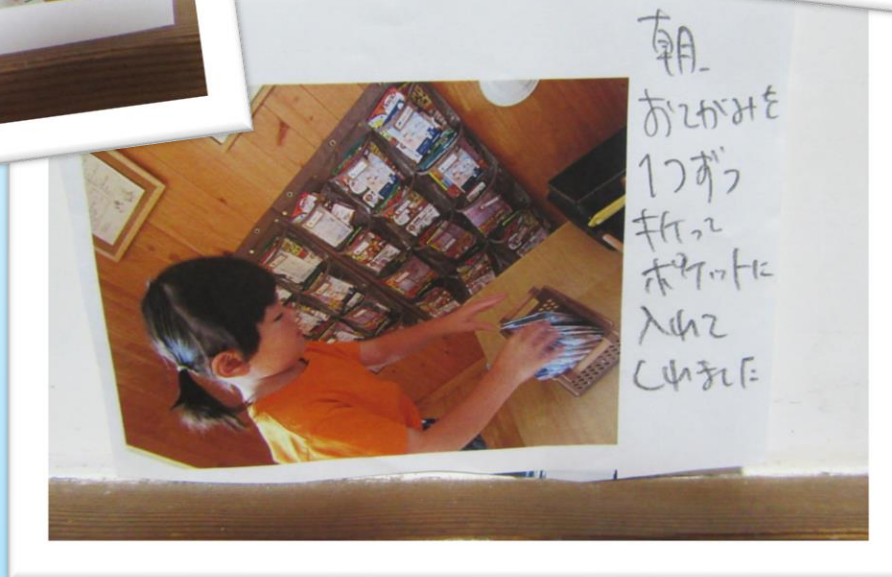 朝
おてがみを
1つずつ
折って
ポケットに
入れて
くれました